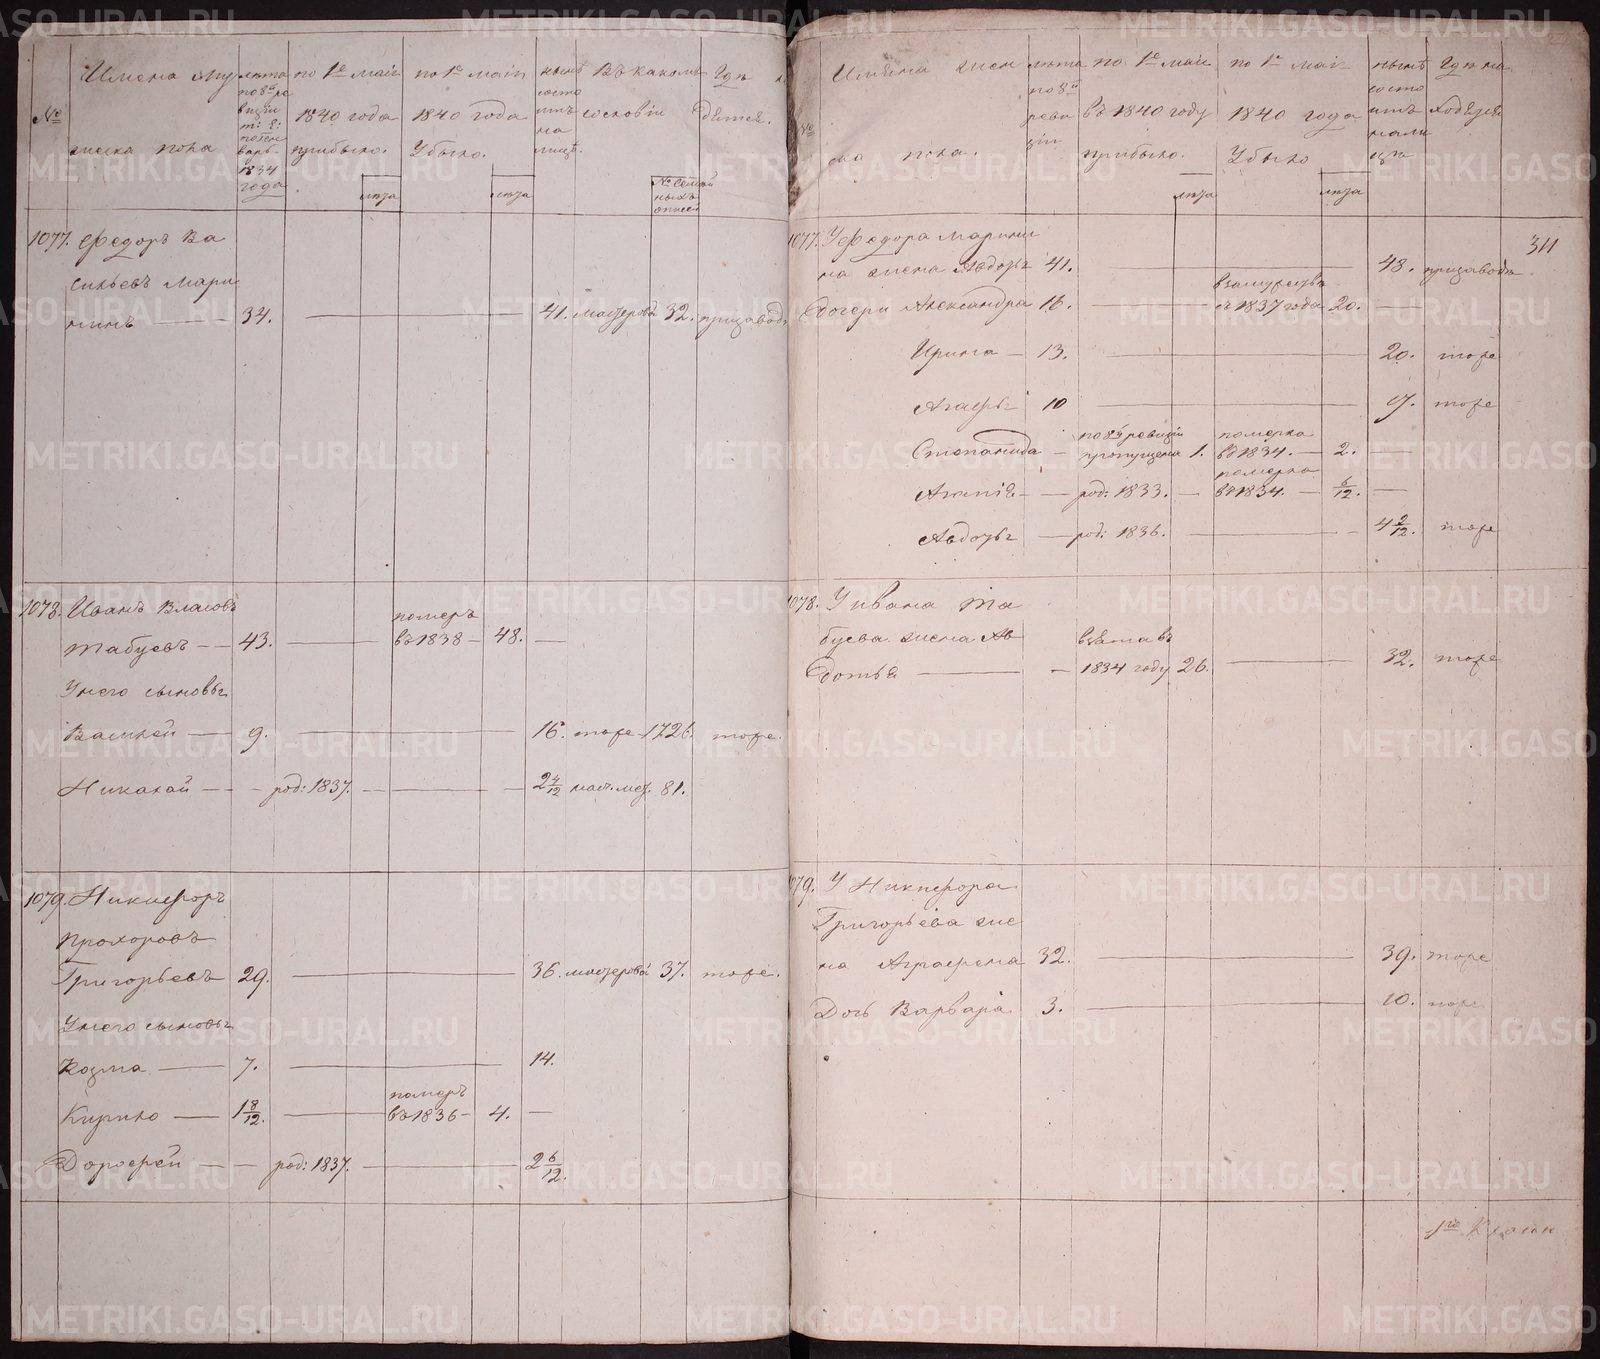 №
Имена му
жеска пола
лѣта
по 8й ре
визіи
1834
года
по 1е маія
1840 года
прибыло.
лѣта
по 1е маія
1840 года
Убыло.
лѣта
нынѣ
состо
итъ
на
лицѣ.
Въ какомъ
сословіи
№ семей
ныхъ
списк
Гдѣ
1077. Федоръ Ва
сильевъ Мари
нинъ 34. 41. мастеровой 32. при заводѣ
1078. Иванъ Власовъ
Табуевъ 43. померъ въ 1838 48.
У него сыновья
Василей 9. 16. тоже 1726. тоже.
Николай род: 1837. 2 4/12 81.
1079. Никифоръ
Прохоровъ
Григорьевъ 29. 36. мастеровой 37. тоже.
У него сыновья
Козма 7. 14.
Кирило 1 8/12. померъ въ 1836 4.
Дорофей род: 1837. 2 6/12.
№
Имена жен
ска пола.
лѣта
по 8й
реви
зіи
по 1е маія
въ 1840 году
прибыло.
лѣта
по 1е маія
1840 года
Убыло
лѣта
нынѣ
состо
итъ
нали
цѣ
Гдѣ на
ходятся
311
1077. У Федора Марини
на жена Авдотья 41. 48. при заводѣ
Дочери Александра 16. въ замужествѣ съ 1837 года 20.
Ирина 13. 20. тоже
Агафья 10 17. тоже
Степанида по 8й ревизіи пропущена 1. померла въ 1834. 2.
род: 1833. померла въ 1834. 6/12.
Авдотья род: 1836. 4 2/12. тоже
1078. У Ивана Та
буева жена Ав
дотья взята въ 1834 году 26. 32. тоже
1079. У Никифора
Григорьева же
на Аграфена 32. 39. тоже
Дочь Варвара 3. 10. тоже
METRIKI.GASO-URAL.RU